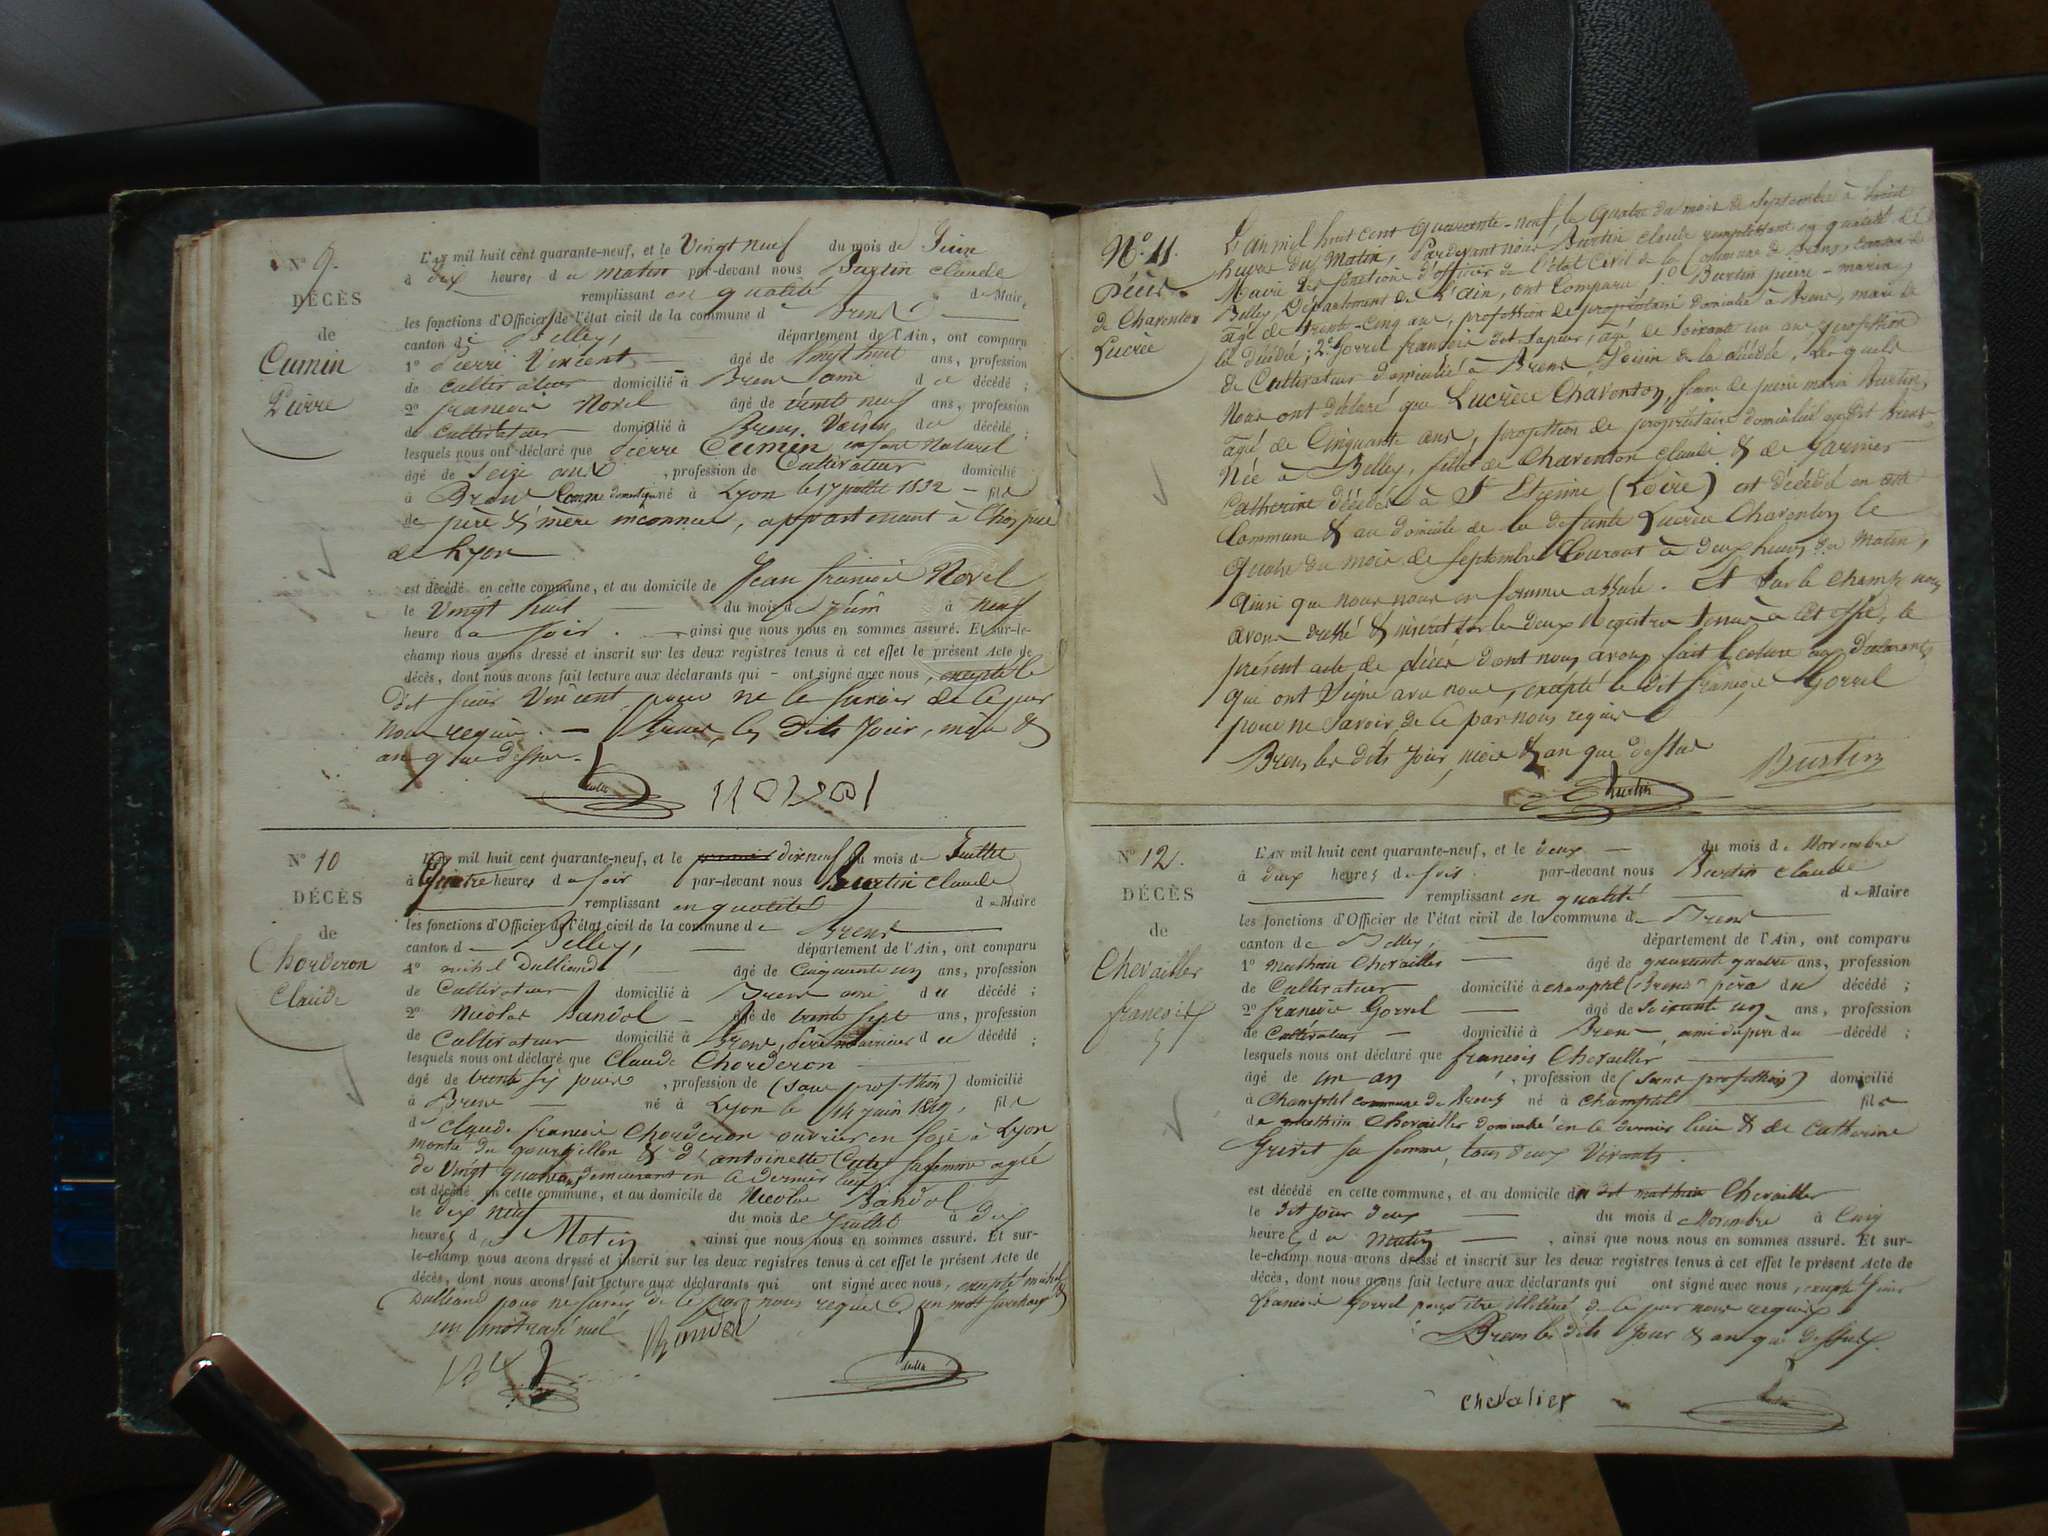 N° 9.
DÉCÈS
de
Cumin
Pierre
L'AN mil huit cent quarante-neuf, et le Vingt neuf du mois de Juin
à dix heures du matin par-devant nous Burtin Claude
remplissant en qualité de Maire
les fonctions d'Officier de l'état civil de la commune d Brens
canton de Belley, département de l'Ain, ont comparu
1° Pierre Vincent âgé de Vingt huit ans, profession
de Cultivateur domicilié à Brens ami du décédé ;
2° francois Novel âgé de vingt neuf ans, profession
de Cultivateur domicilié à Brens, Voisin du décédé ;
lesquels nous ont déclaré que Pierre Cumin enfant Naturel
âgé de Seize ans, profession de Cultivateur domicilié
à Brens Comme domestique né à Lyon le 17 juillet 1832 - fils
de père & mère inconnue, appartenant à
de Lyon
est décédé en cette commune, et au domicile de Jean francois Novel
le Vingt huit du mois de Juin à neuf
heure du Soir. ainsi que nous nous en sommes assuré. Et sur-le-
champ nous avons dressé et inscrit sur les deux registres tenus à cet effet le présent Acte de
décès, dont nous avons fait lecture aux déclarants qui - ont signé avec nous, excepté le
dit sieur Vincent pour ne le savoir de ce par
nous requis. - Brens, les Dits Jour, mois &
an que dessus.
N° 10
DÉCÈS
de
Chorderon
Claude
L'AN mil huit cent quarante-neuf, et le premier dix neuf du mois de Juillet
à Quatre heures du soir par-devant nous Burtin Claude
remplissant en qualité de Maire
les fonctions d'Officier de l'état civil de la commune de Brens
canton de Belley, département de l'Ain, ont comparu
1° michel Dulliand âgé de Cinquante un ans, profession
de Cultivateur domicilié à Brens ami du décédé ;
2° Nicolas Bandol âgé de trente sept ans, profession
de Cultivateur domicilié à Brens, père nourricier du décédé ;
lesquels nous ont déclaré que Claude Chorderon
âgé de trente six jours, profession de (sans profession) domicilié
à Brens né à Lyon le 14 juin 1849, fils
de Claude francois Chorderon ouvrier en soie à Lyon
monté du gourguillon & d'antoinette sa femme agée
de Vingt quatre ans demeurant en ce dernier lieu
est décédé en cette commune, et au domicile de Nicolas Bandol
le dix neuf du mois de Juillet à dix
heures du Matin, ainsi que nous nous en sommes assuré. Et sur-
le-champ nous avons dressé et inscrit sur les deux registres tenus à cet effet le présent Acte de
décès, dont nous avons fait lecture aux déclarants qui ont signé avec nous, excepté michel
Dulliand pour ne savoir de ce par nous requis un mot surchargé &
un mot rayé nul
Bandol
N° 11.
Décès
de Charenton
Lucrèce
L'an mil huit cent quarante-neuf, le quatre du mois de Septembre à huit
heures du Matin, Pardevant nous Burtin Claude remplissant en qualité de
Maire les fonctions d'officier de l'état civil de la Commune de Brens, canton de
Belley, Département de l'ain, ont Comparu, 1° Burtin pierre-marie,
âgé de trente-cinq ans, profession de propriétaire domicilié à Brens, mari de
la décédée; 2° Gorrel francois dit Sapeur, âgé de Soixante un ans profession
de Cultivateur domicilié à Brens, Voisin de la décédée, lesquels
Nous ont déclaré que Lucrèce Charenton, femme de pierre marie Burtin,
âgé de Cinquante ans, profession de propriétaire domicilié audit Brens
Née à Belley, fille de Charenton Claude & de Garnier
Catherine décédés à St Etienne (Loire) est décédé en cette
Commune & au domicile de la defunte Lucrèce Charenton le
quatre du mois de Septembre Courant à deux heures du Matin,
ainsi que nous nous en somme assuré. Et Sur le Champ nous
avons dressé & inscrit sur les deux Registres tenus à cet effet, le
présent acte de décès dont nous avons fait lecture aux Déclarants,
qui ont signé avec nous, excepté le dit françois Gorrel
pour ne savoir, de ce par nous requis
Brens les dits Jour, mois & an que dessus
Burtin
Burtin
N° 12.
DÉCÈS
de
Chevailler
françois
L'AN mil huit cent quarante-neuf, et le deux du mois de Novembre
à deux heures du soir par-devant nous Burtin Claude
remplissant en qualité de Maire
les fonctions d'Officier de l'état civil de la commune de Brens
canton de Belley, département de l'Ain, ont comparu
1° Mathieu Chevailler âgé de quarante quatre ans, profession
de Cultivateur domicilié à champtel (Brens) père du décédé ;
2° francois Gorrel âgé de Soixante un ans, profession
de Cultivateur domicilié à Brens, ami du père du décédé ;
lesquels nous ont déclaré que françois Chevailler
âgé de un an, profession de (sans profession) domicilié
à Champtel commune de Brens né à champtel fils
de mathieu Chevailler domicilié en ce dernier lieu & de Catherine
Grivet sa femme, tous deux Vivants.
est décédé en cette commune, et au domicile du dit mathieu Chevailler
le dit jour deux du mois de Novembre à Cinq
heures du matin, ainsi que nous nous en sommes assuré. Et sur-
le-champ nous avons dressé et inscrit sur les deux registres tenus à cet effet le présent Acte de
décès, dont nous avons fait lecture aux déclarants qui ont signé avec nous, excepté
francois Gorrel pour être illitéré de ce par nous requis
Brens les dits Jour & an que dessus.
chevalier